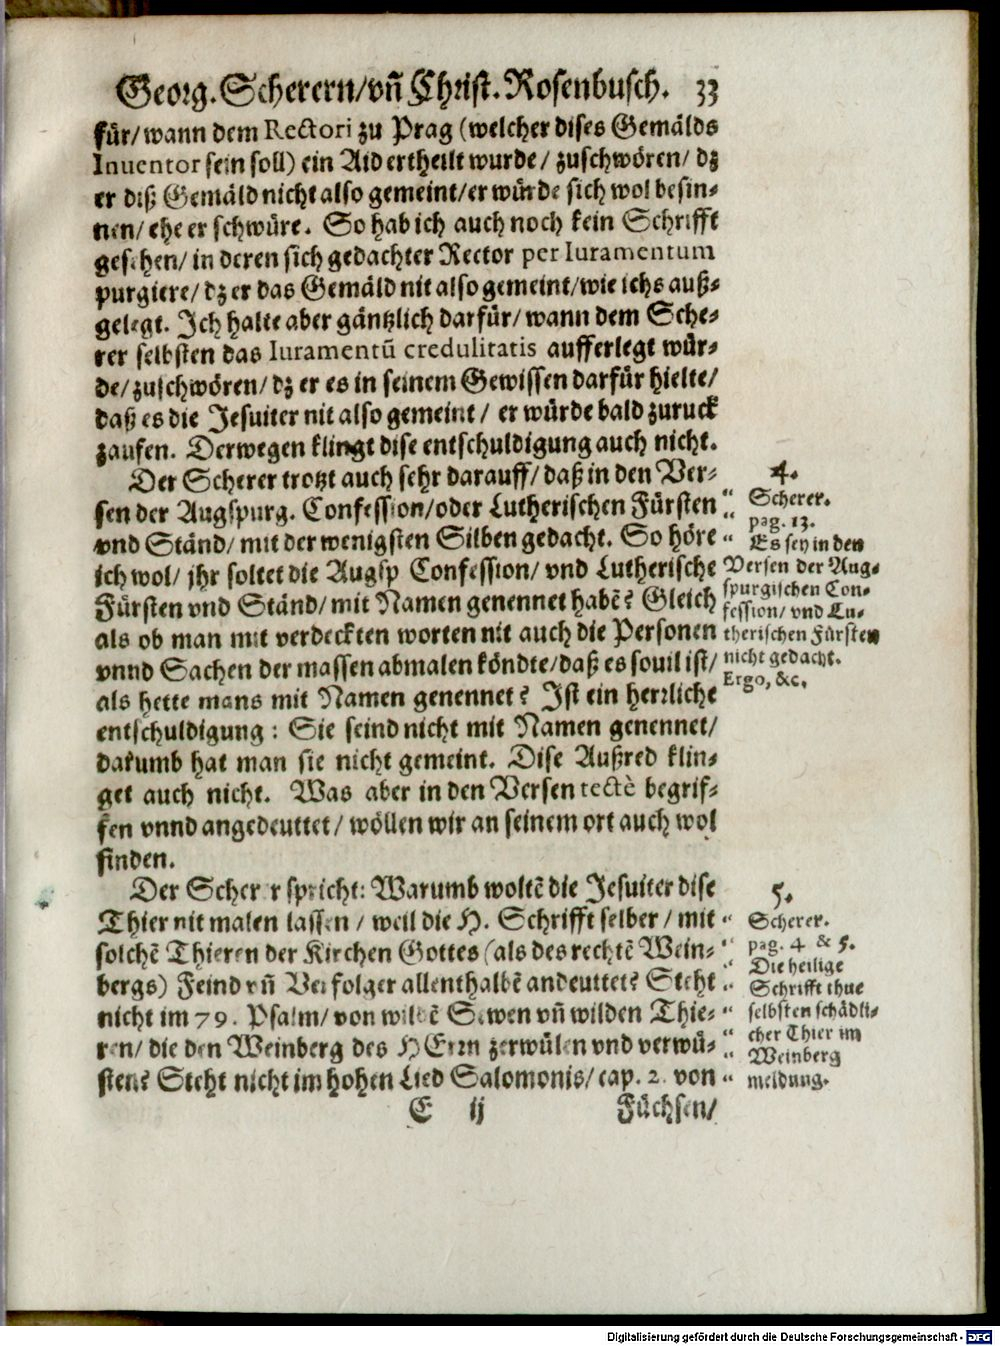 Georg. Scherern/vñ Christ. Rosenbusch. 33
für/wann dem Rectori zu Prag (welcher dises Gemälds
Inuentor sein soll) ein Aid ertheilt wurde/ zuschwören/ dz
er diß Gemäld nicht also gemeint/er würde sich wol besin-
nen/ ehe er schwüre. So hab ich auch noch kein Schrifft
gesehen/ in deren sich gedachter Rector per Iuramentum
purgiere/ dz er das Gemäld nit also gemeint/wie ichs auß-
gelegt. Ich halte aber gäntzlich darfür/ wann dem Sche-
rer selbsten das Iuramentū credulitatis aufferlegt wür-
de/ zuschwören/ dz er es in seinem Gewissen darfür hielte/
daß es die Jesuiter nit also gemeint/ er würde bald zuruck
zaufen. Derwegen klingt dise entschuldigung auch nicht.
Der Scherer trotzt auch sehr darauff/ daß in den Ver-
sen der Augspurg. Confession/oder Lutherischen Fürsten
vnd Ständ/ mit der wenigsten Silben gedacht. So höre
ich wol/ jhr soltet die Augsp Confession/ vnd Lutherische
Fürsten vnd Ständ/ mit Namen genennet habē? Gleich
als ob man mit verdeckten worten nit auch die Personen
vnnd Sachen der massen abmalen köndte/daß es souil ist/
als hette mans mit Namen genennet? Ist ein herrliche
entschuldigung: Sie seind nicht mit Namen genennet/
darumb hat man sie nicht gemeint. Dise Außred klin-
get auch nicht. Was aber in den Versen tectè begrif-
fen vnnd angedeuttet/ wöllen wir an seinem ort auch wol
finden.
4.
Scherer.
pag. 13.
Es sey in den
Versen der Aug-
spurgischen Con-
fession/ vnd Lu-
therischen Fürsten
nicht gedacht.
Ergo, &c.
Der Scherer spricht: Warumb woltē die Jesuiter dise
Thier nit malen lassen/ weil die H. Schrifft selber/ mit
solchē Thieren der Kirchen Gottes (als des rechtē Wein-
bergs) Feind vñ Verfolger allenthalbē andeuttet? Steht
nicht im 79. Psalm/ von wildē Sewen vñ wilden Thie-
ren/ die den Weinberg des HErrn zerwülen vnd verwü-
sten? Steht nicht im hohen Lied Salomonis/ cap. 2. von
5.
Scherer.
pag. 4 & 5.
Die heilige
Schrifft thue
selbsten schädli-
cher Thier im
Weinberg
meldung.
E ij Füchsen/
Digitalisierung gefördert durch die Deutsche Forschungsgemeinschaft - DFG